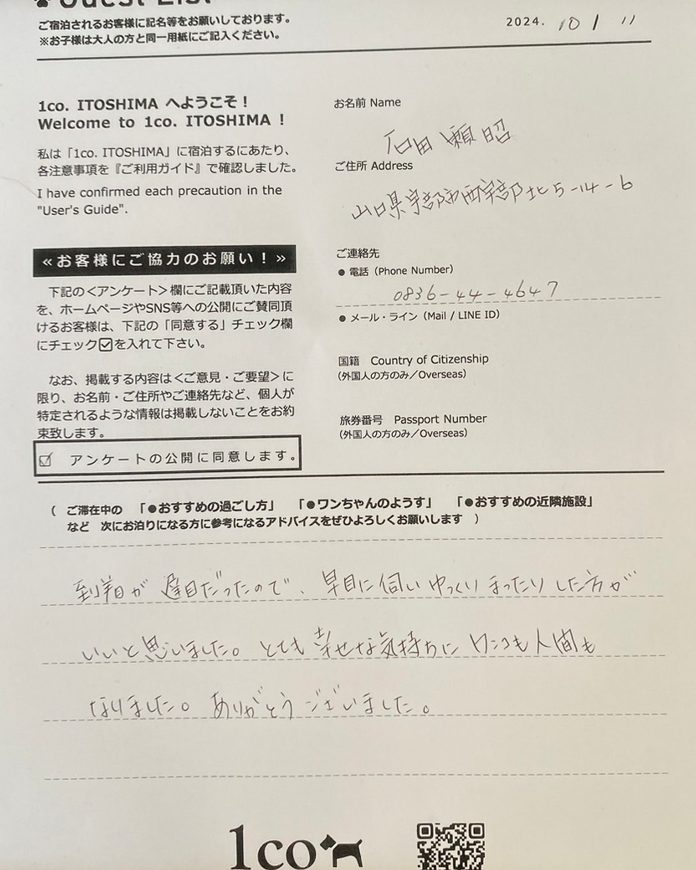 Guest List
ご宿泊されるお客様に記名等をお願いしております。
※お子様は大人の方と同一用紙にご記入ください。
2024. 10 / 11
1co. ITOSHIMA へようこそ！
Welcome to 1co. ITOSHIMA！
私は「1co. ITOSHIMA」に宿泊するにあたり、
各注意事項を『ご利用ガイド』で確認しました。
I have confirmed each precaution in the
"User's Guide".
≪お客様にご協力のお願い！≫
下記の＜アンケート＞欄にご記載頂いた内容
を、ホームページやSNS等への公開にご賛同頂
けるお客様は、下記の「同意する」チェック欄
にチェック☑を入れて下さい。
なお、掲載する内容は＜ご意見・ご要望＞に
限り、お名前・ご住所やご連絡先など、個人が
特定されるような情報は掲載しないことをお約
束致します。
☑ アンケートの公開に同意します。
お名前 Name
石田 瀬昭
ご住所 Address
山口県宇部市西宇部北5-14-6
ご連絡先
● 電話（Phone Number）
0836-44-4647
● メール・ライン（Mail / LINE ID）
国籍 Country of Citizenship
（外国人の方のみ／Overseas）
旅券番号 Passport Number
（外国人の方のみ／Overseas）
（ ご滞在中の 「●おすすめの過ごし方」 「●ワンちゃんのようす」 「●おすすめの近隣施設」
など 次にお泊りになる方に参考になるアドバイスをぜひよろしくお願いします ）
到着が 遅目だったので、早目に伺い ゆっくり まったり した方が
いいと思いました。とても 幸せな気持ちに ワンコも人間も
なりました。ありがとうございました。
1co